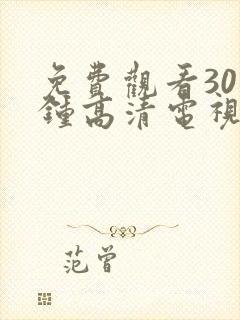 免費觀看30
鍾高清電視
范曾